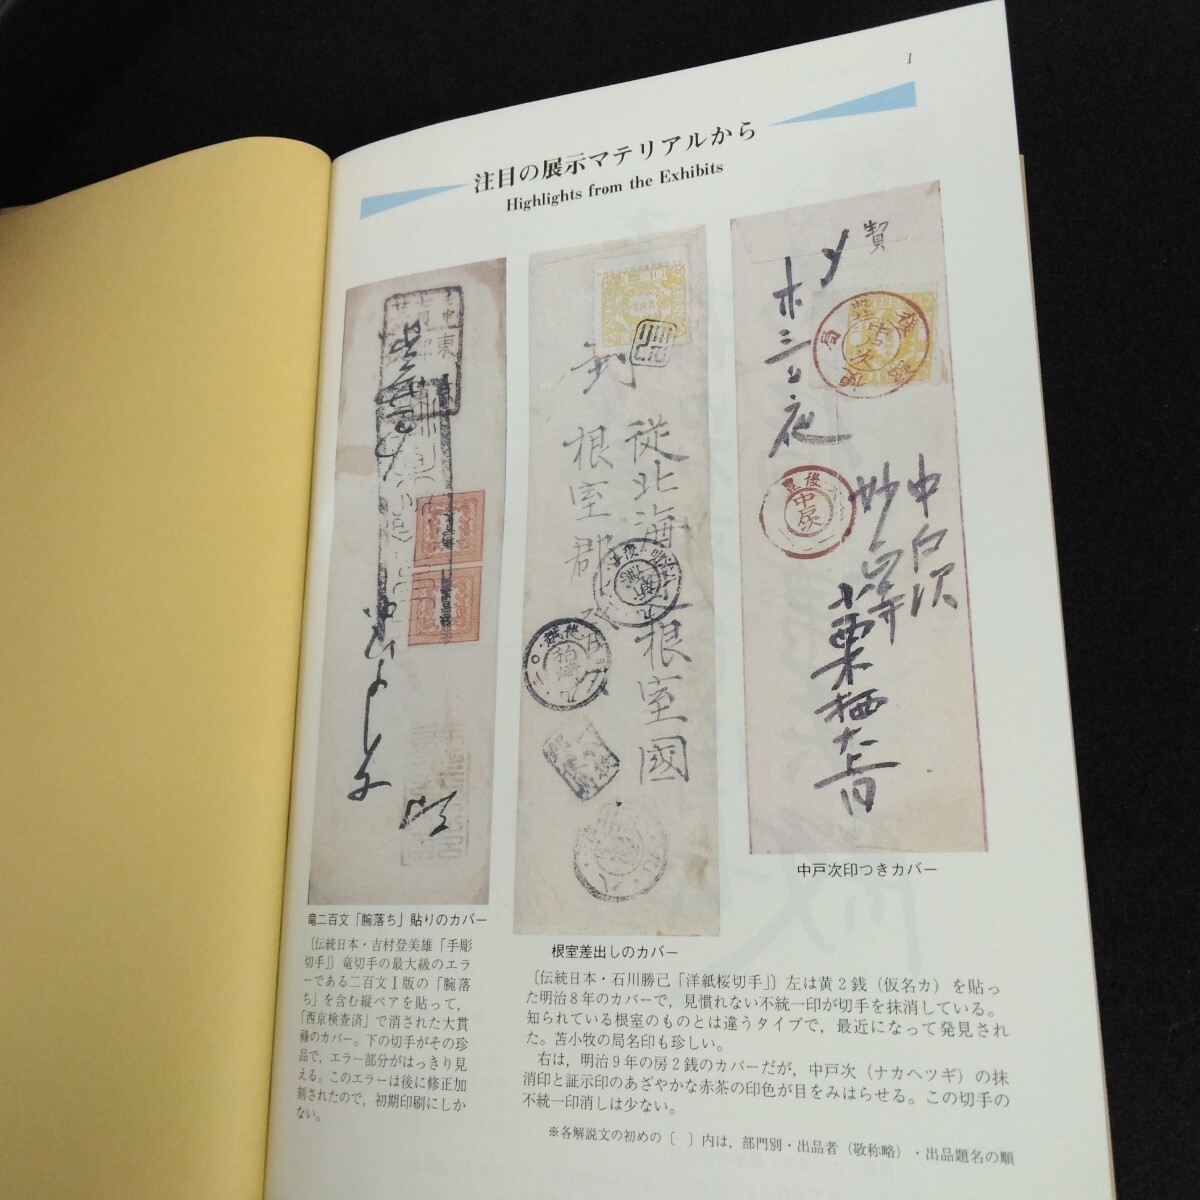 1
注目の展示マテリアルから
Highlights from the Exhibits
従北海
根室國
根室郡
中戸次
妙正寺
竜二百文「腕落ち」貼りのカバー
〔伝統日本・吉村登美雄「手彫
切手」〕竜切手の最大級のエラ
ーである二百文Ⅰ版の「腕落
ち」を含む縦ペアを貼って，
「西京検査済」で消された大貫
禄のカバー。下の切手がその珍
品で，エラー部分がはっきり見
える。このエラーは後に修正加
刻されたので，初期印刷にしか
ない。
根室差出しのカバー
中戸次印つきカバー
〔伝統日本・石川勝己「洋紙桜切手」〕左は黄2銭（仮名カ）を貼っ
た明治8年のカバーで，見慣れない不統一印が切手を抹消している。
知られている根室のものとは違うタイプで，最近になって発見され
た。苫小牧の局名印も珍しい。
右は，明治9年の房2銭のカバーだが，中戸次（ナカヘツギ）の抹
消印と証示印のあざやかな赤茶の印色が目をみはらせる。この切手の
不統一印消しは少ない。
※各解説文の初めの〔　〕内は，部門別・出品者（敬称略）・出品題名の順